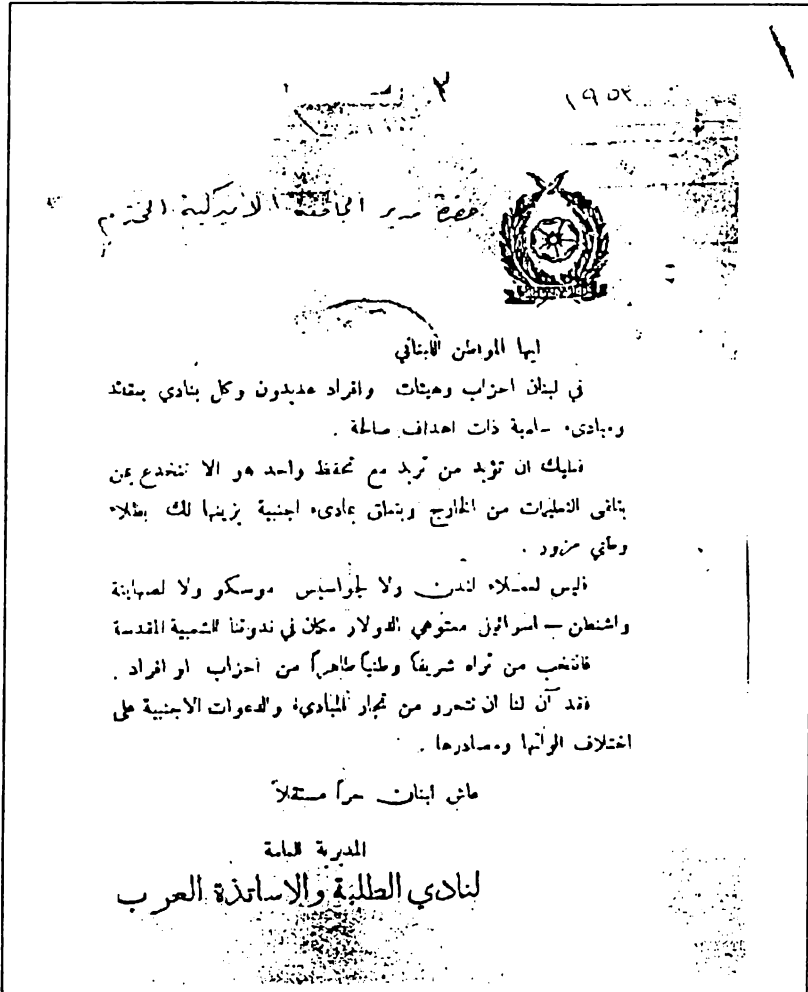 ٣ ١٩٥٣
حضرة مدير الجامعة الاميركية المحترم
ايها المواطن اللبناني
في لبنان احزاب وهيئات وافراد عديدون وكل ينادي بعقائد
ومبادىء سامية ذات اهداف صالحة .
فعليك ان تؤيد من تريد مع تحفظ واحد هو الا تنخدع بمن
يتلقى التعليمات من الخارج ويتعلق بمبادىء اجنبية يزينها لك بطلاء
وطني مزور .
فليس لعملاء لندن ولا لجواسيس موسكو ولا لصهاينة
واشنطن – اسرائيل معتوهي الدولار مكان في ندوتنا الشعبية المقدسة
فانتخب من تراه شريفاً وطنياً طاهراً من احزاب او افراد .
فقد آن لنا ان نتحرر من تجار المبادىء والدعوات الاجنبية على
اختلاف الوانها ومصادرها .
عاش لبنان حراً مستقلاً
المديرية العامة
لنادي الطلبة والاساتذة العرب